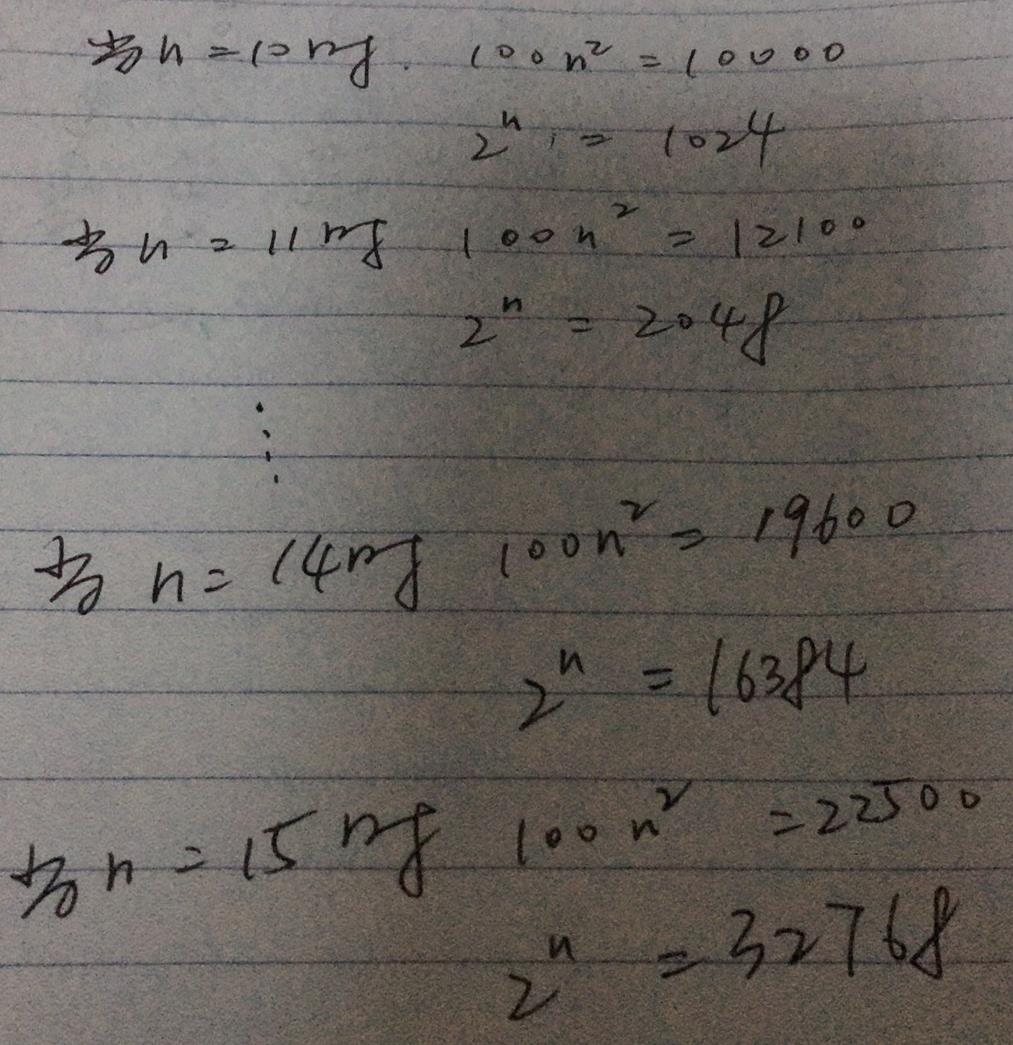 当n=10时. 100n²=10000
2ⁿ=1024
当n=11时 100n²=12100
2ⁿ=2048
⋮
当n=14时 100n²=19600
2ⁿ=16384
当n=15时 100n²=22500
2ⁿ=32768